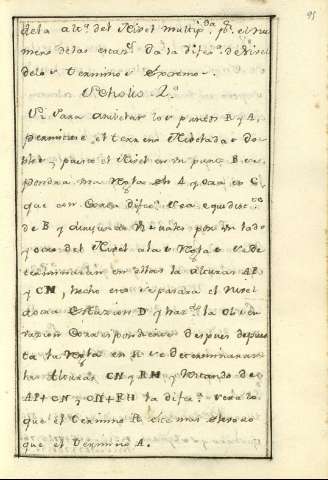 95
de la alt.ª del Nivel multip.da p.r el nu
mero de las estac.s da la difer.ª de Nivel
de los terminos extremos.
Scholio 2.º
Si para nivelar los puntos B y A,
permitiere el terreno Nivelada do
ble, puesto el Nivel en un punto B
pondra una Regla en A y otra en C
que con corta difer.ª sea equidist.te
de B y por un lado
y otro del Nivel a las Reglas se de
terminaran en ellas la alturas AP
y CN, hecho esto se pasara el Nivel
a otra estazion D y haz la obser
vazion correspondiente despues de pues
ta la Regla en R se determinaran
las alturas CN y RH y restando de
AP+CN, CN+RH la difer.ª sera lo
que el termino R
que el termino A.